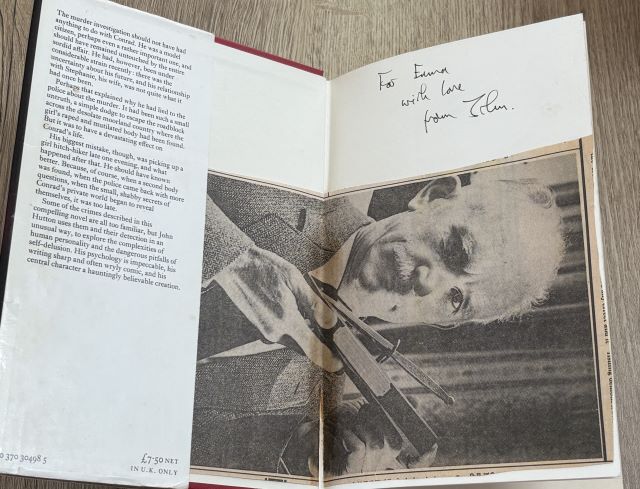 The murder investigation should not have had
anything to do with Conrad. He was a model
citizen, perhaps even a rather important one, and
should have remained untouched by the entire
sordid affair. He had, however, been under
considerable strain recently: there was the
uncertainty about his future, and his relationship
with Stephanie, his wife, was not quite what it
had once been.
Perhaps that explained why he had lied to the
police about the murder. It had been such a small
untruth, a simple dodge to escape the roadblock
across the desolate moorland country where the
girl's raped and mutilated body had been found.
But it was to have a devastating effect on
Conrad's life.
His biggest mistake, though, was picking up a
girl hitch-hiker late one evening, and what
happened after that. He should have known
better. Because, of course, when a second body
was found, when the police came back with more
questions, when the small, shabby secrets of
Conrad's private world began to reveal
themselves, it was too late.
Some of the crimes described in this
compelling novel are all too familiar, but John
Hutton uses them and their detection in an
unusual way, to explore the complexities of
human personality and the dangerous pitfalls of
self-delusion. His psychology is impeccable, his
writing sharp and often wryly comic, and his
central character a hauntingly believable creation.
0 370 30498 5
£7·50 NET
IN U.K. ONLY
For Edna
with love
from John.